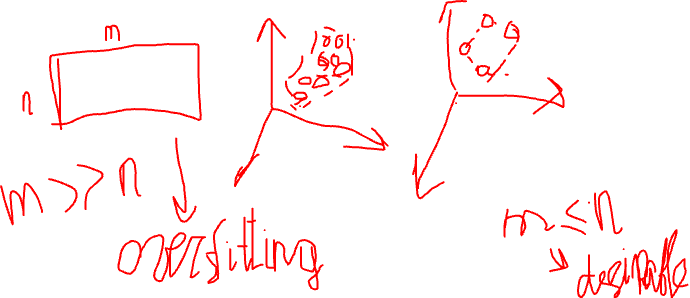 m
n
m >> n
overfitting
m ≤ n
desirable